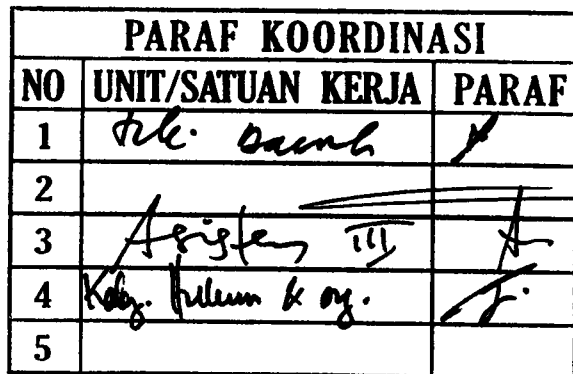 PARAF KOORDINASI
NO UNIT/SATUAN KERJA PARAF
1 Daerah
2
3 Asisten III
4 Kabag. Hukum & org.
5